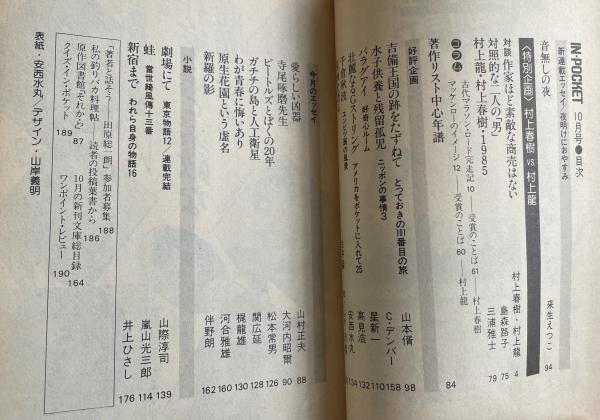 IN★POCKET 10月号●目次
新連載エッセイ/夜明けにおやすみ
音無しの夜 来生えつこ 94
〈特別企画〉村上春樹 vs 村上龍
対談 作家ほど素敵な商売はない 村上春樹・村上龍 4
対照的な二人の「男」 島森路子 75
村上龍・村上春樹・1985 三浦雅士 79
コラム
古代マラソン・ロード完走記 10 受賞のことば 61 村上春樹
アッケンローのイメージ 12 受賞のことば 60 村上龍
著作リスト中心年譜 84
好評企画
吉備王国の跡をたずねて とっておきの101番目の旅 山本脩 98
水子供養と残留孤児 ニッポンの事情3 C・デンバー 158
パラグアイ 好奇心ルーム 星新一 110
壮麗なるGストリング アメリカをポケットに入れて25 高見浩 132
千倉秋波 エンピツ画の風景 安西水丸 134
今月のエッセイ
愛らしい凶器 山村正夫 88
寺尾琢磨先生 大河内昭爾 90
ビートルズとぼくの20年 松本常男 126
ガチチの島と人工衛星 関広延 128
わが青春に悔いあり 梶龍雄 130
原生花園という虚名 河合雅雄 160
新羅の影 伴野朗 162
小説
劇場にて 東京物語12/連載完結 山際淳司 139
蛙 當世綺風傳十三番 嵐山光三郎 114
新宿まで われら自身の物語16 井上ひさし 176
「著者と話そう」――田原総一朗 参加者募集 188
私の釣りバカ料理帖――読者の投稿葉書から 186
原作図書館「それから」 87 10月の新刊文庫総目録 164
クイズ・イン・ポケット 189 ワンポイント・レビュー 190
表紙・安西水丸/デザイン・山岸義明